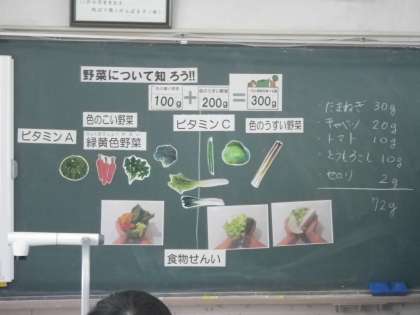 野菜について知ろう!!
色のこい野菜
100g
+
色のうすい野菜
200g
=
300g
ビタミンA
色のこい野菜
緑黄色野菜
ビタミンC
色のうすい野菜
食物せんい
・たまねぎ 30g
・キャベツ 20g
・トマト 10g
・とうもろこし 10g
・セロリ 2g
72g